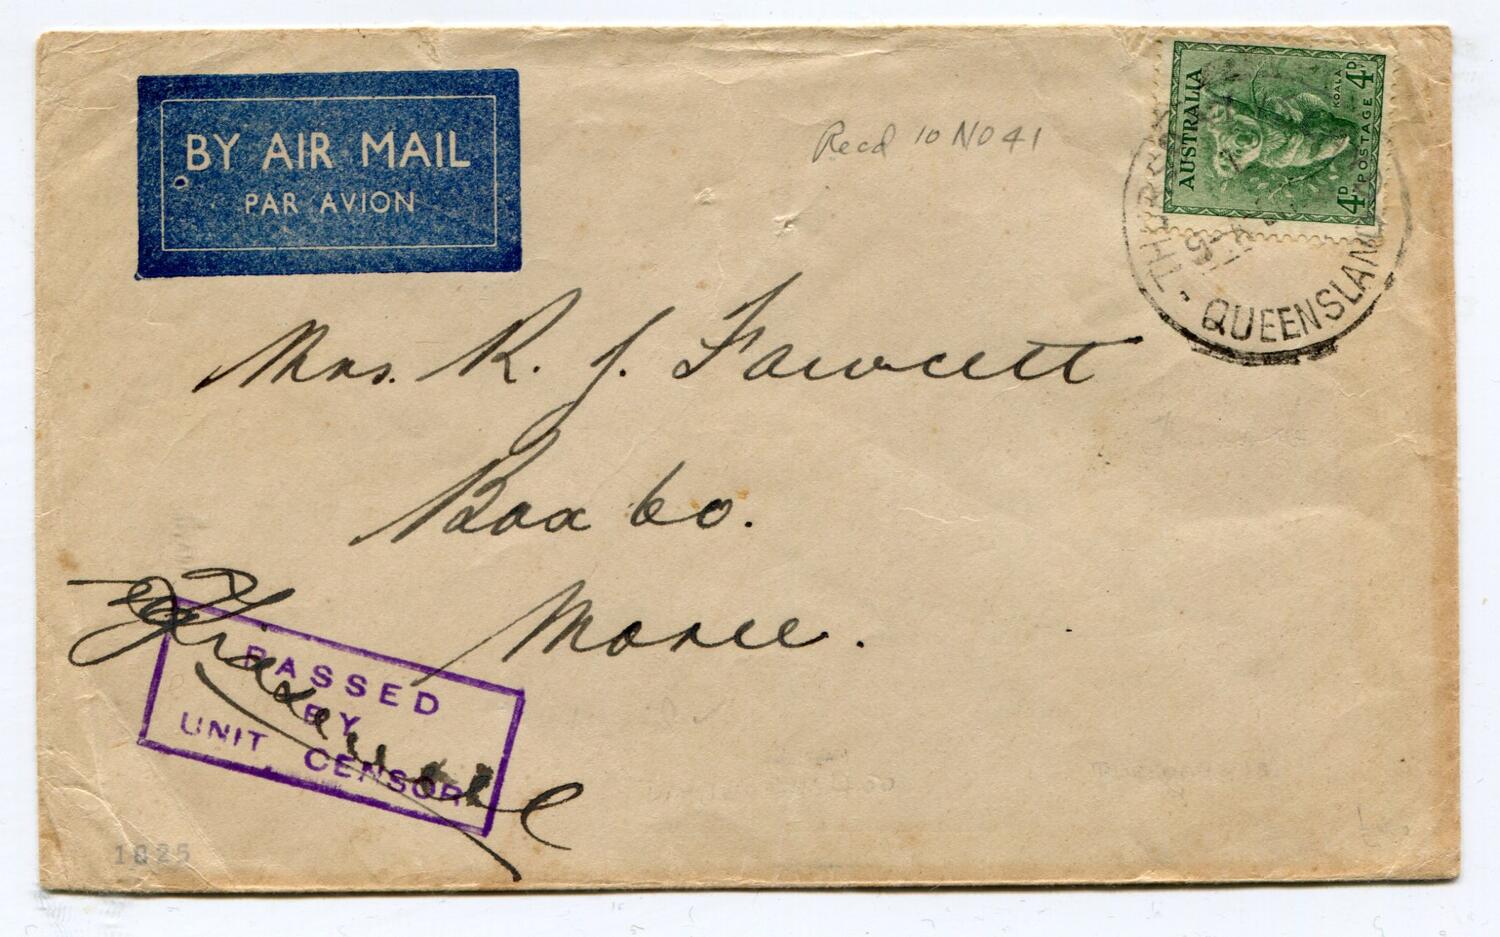 BY AIR MAIL
PAR AVION
Recd 10 NO 41
AUSTRALIA
4D POSTAGE 4D
KOALA
QUEENSLAND
Mrs. R. J. Fawcett
Box 60.
Moree.
PASSED
BY
UNIT CENSOR
1825